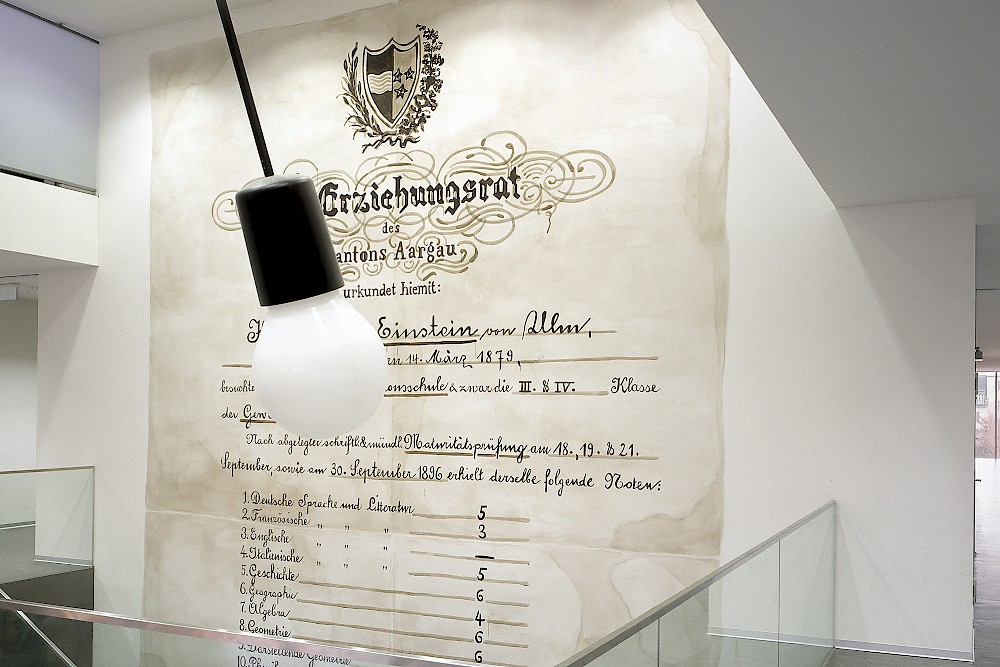 Erziehungsrat
des
antons Aargau
urkundet hiemit:
Einstein von Ulm,
en 14. März 1879,
besuchte onsschule & zwar die III. & IV. Klasse
der Gew
Nach abgelegter schriftl. & mündl. Maturitätsprüfung am 18., 19. & 21.
September, sowie am 30. September 1896 erhielt derselbe folgende Noten:
1. Deutsche Sprache und Litteratur 5
2. Französische " " " 3
3. Englische " " " —
4. Italienische " " " 5
5. Geschichte 6
6. Geographie 4
7. Algebra 6
8. Geometrie 6
9. Darstellende Geometrie
10. Physik